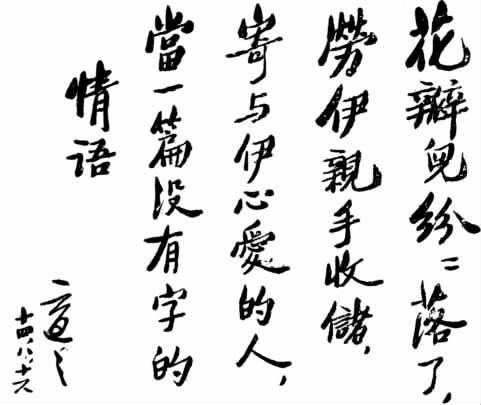 花瓣兒紛〻落了，
勞伊親手收儲，
寄与伊心愛的人，
當一篇没有字的
情语
適之
十四，八，十六